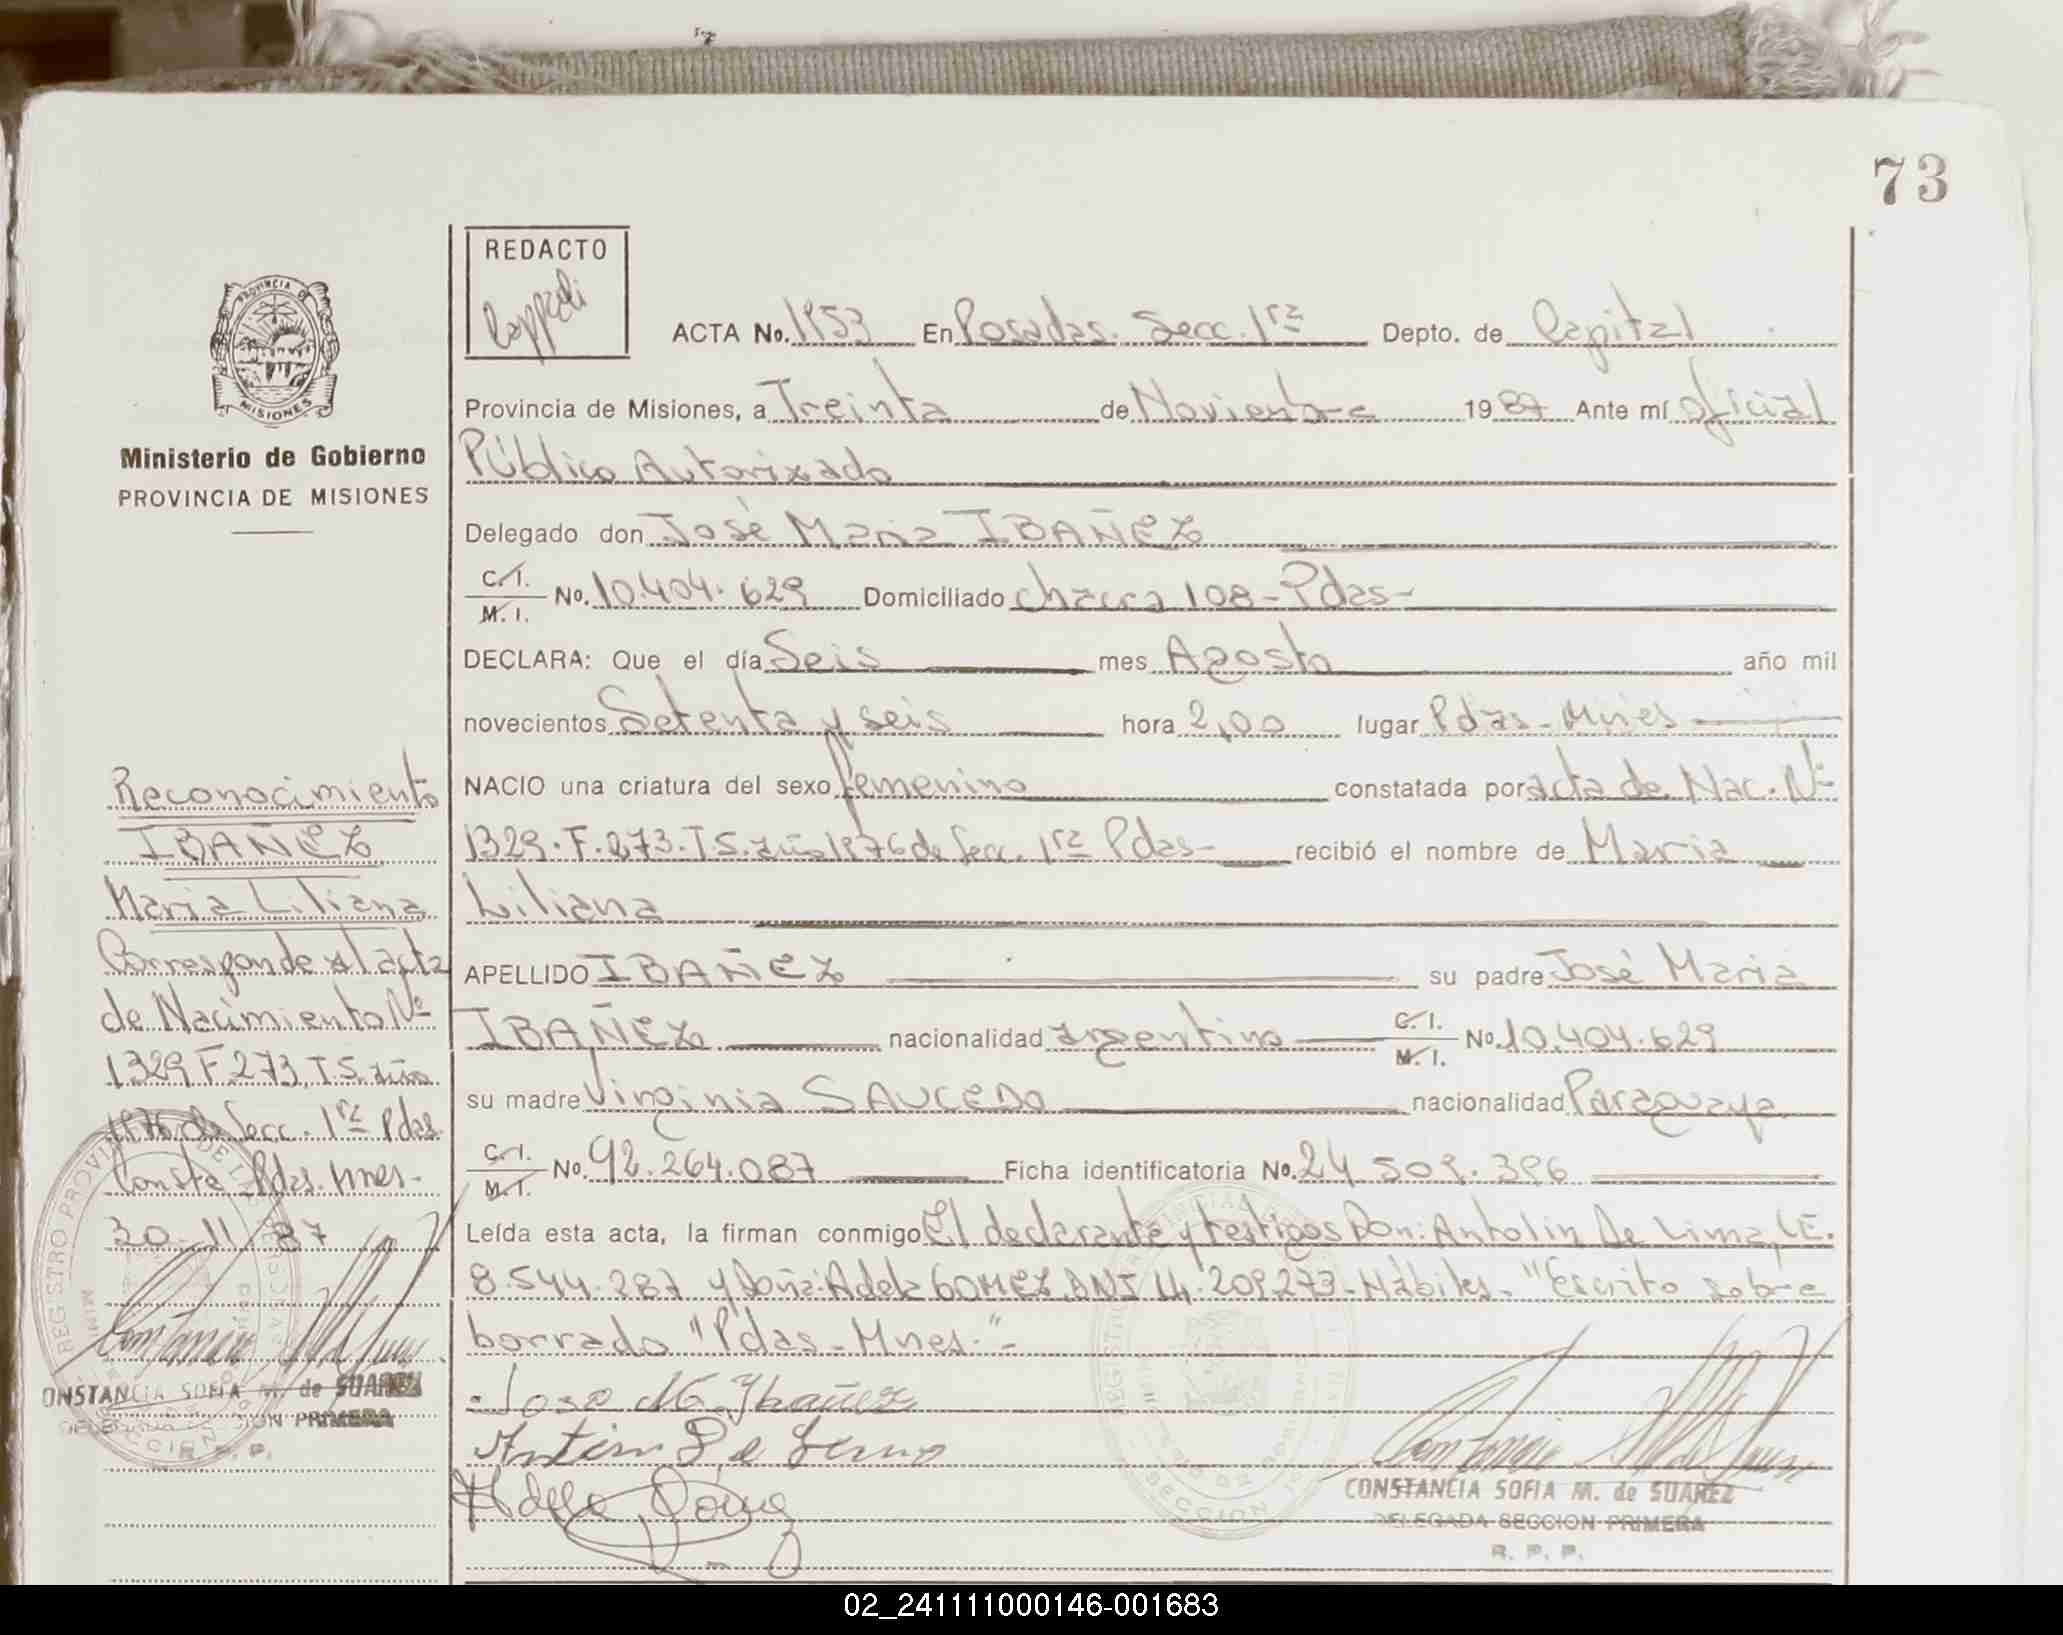 73
REDACTO
ACTA No. 1953 En Posadas. Secc. 1ra Depto. de Capital
PROVINCIA DE
MISIONES
Provincia de Misiones, a Treinta de Noviembre 1987 Ante mí oficial
Ministerio de Gobierno
PROVINCIA DE MISIONES
Público Autorizado
Delegado don José Maria IBAÑEZ
C.I. M.I. No. 10.404.629 Domiciliado chacra 108 - Pdas-
DECLARA: Que el día Seis mes Agosto año mil
novecientos Setenta y seis hora 2,00 lugar Pdas - Mnes
NACIO una criatura del sexo femenino constatada por acta de Nac. Nº
1329. F. 273. T. 5. año 1976 de Secc. 1ra Pdas- recibió el nombre de Maria
Liliana
APELLIDO IBAÑEZ su padre José Maria
IBAÑEZ nacionalidad argentino C.I. M.I. No. 10.404.629
su madre Virginia SAUCEDO nacionalidad Paraguaya
C.I. M.I. No. 92.264.087 Ficha identificatoria No. 24.509.396
Leída esta acta, la firman conmigo El declarante y testigos Don: Antolin De Lima, L.E.
8.544.287 y Doña: Adela GOMEZ, DNI 14.209.273 - Hábiles - "Escrito sobre
borrado "Pdas - Mnes." -
Jose M. Ybañez
Adela Gomez
CONSTANCIA SOFIA M. de SUAREZ
DELEGADA SECCION PRIMERA
R. P. P.
Reconocimiento
IBAÑEZ
Maria Liliana
Corresponde al acta
de Nacimiento Nº
1329 F 273, T. 5. año
1976 de Secc. 1ra Pdas.
Consta Pdas. Mnes -
30 - 11 - 87
ONSTANCIA SOFIA M. de SUAREZ
ION PRIMERA
R. P. P.
02_241111000146-001683